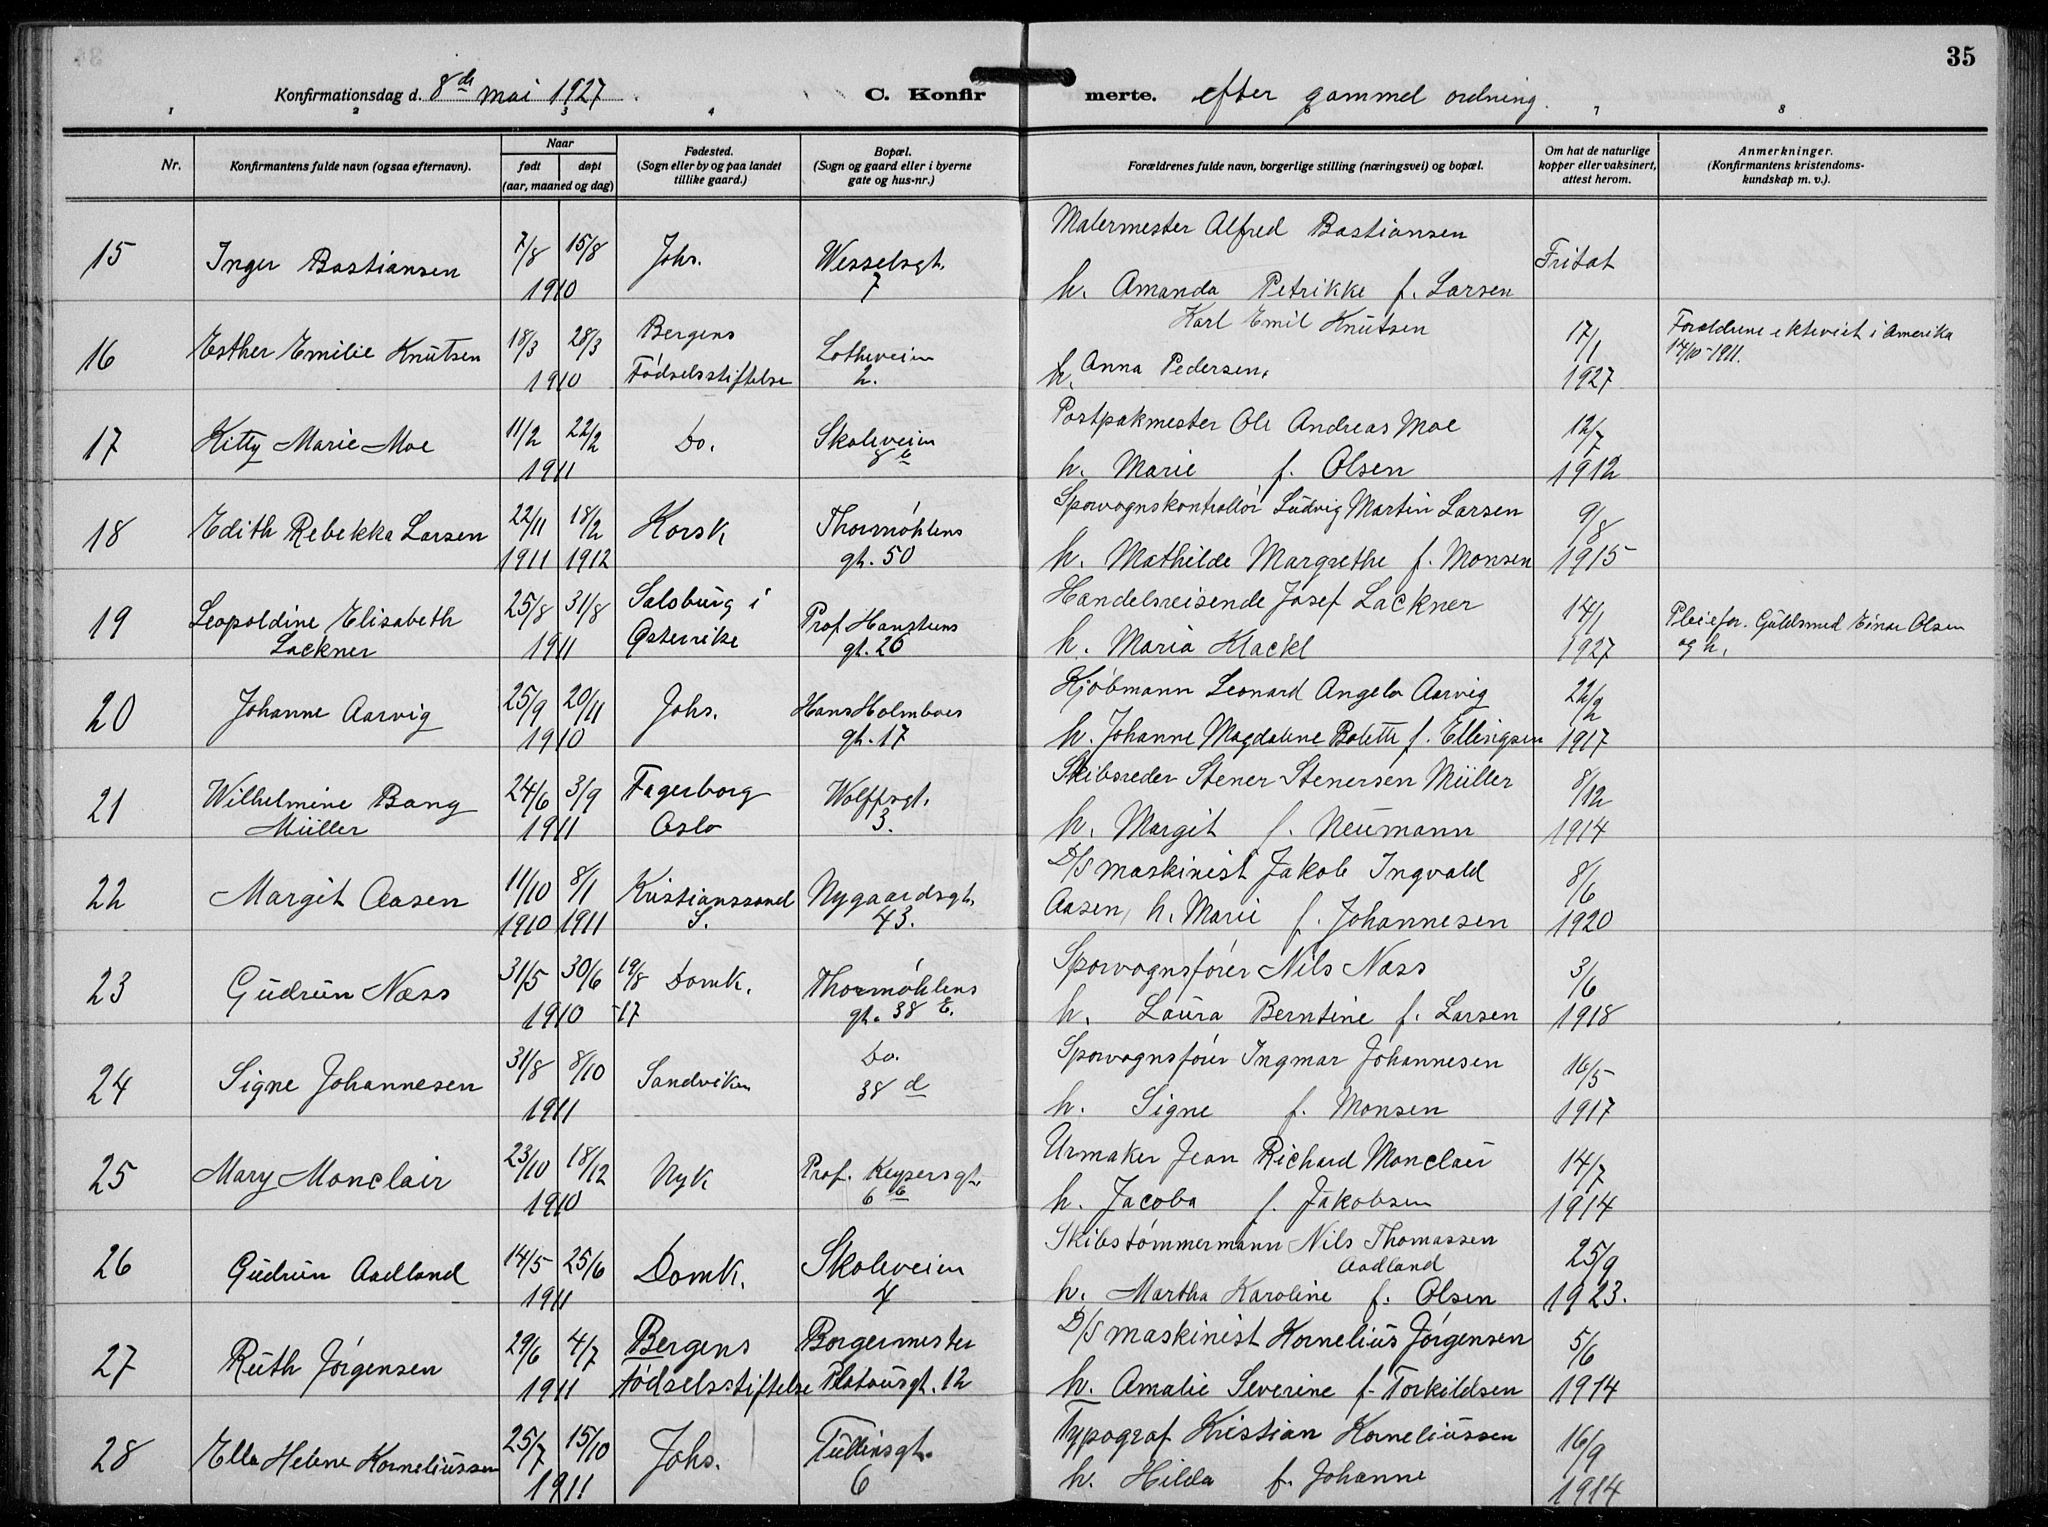 35
Konfirmationsdag d. 8de mai 1927. C. Konfirmerte. efter gammel ordning.
1 2 3 4 6 7 8
Nr. Konfirmantens fulde navn (ogsaa efternavn). Naar født døpt (aar, maaned og dag) Fødested. (Sogn eller by og paa landet tillike gaard.) Bopæl. (Sogn og gaard eller i byerne gate og hus-nr.) Forældrenes fulde navn, borgerlige stilling (næringsvei) og bopæl. Om hat de naturlige kopper eller vaksinert, attest herom. Anmerkninger. (Konfirmantens kristendoms-kundskap m. v.).
15 Inger Bastiansen 7/8 15/8 1910 Johs. Wesselsgt. 7 Malermester Alfred Bastiansen
h. Amanda Petrikke f. Larsen Fritat
16 Esther Emilie Knutsen 18/3 28/3 1910 Bergens Fødselsstiftelse Lotheveien 2. Karl Emil Knutsen
h. Anna Pedersen. 17/1 1927 Forældrene ekteviet i Amerika 14/10-1911.
17 Kitty Marie Moe 11/2 22/2 1911 Do. Skoleveien 8b Postpakmester Ole Andreas Moe
h. Marie f. Olsen 12/7 1912
18 Edith Rebekka Larsen 22/11 1911 18/2 1912 Korsk Thormøhlens gt. 50 Sporvognskontrollør Ludvig Martin Larsen
h. Mathilde Margrethe f. Monsen 9/8 1915
19 Leopoldine Elisabeth Lackner 25/8 31/8 1911 Salsburg i Østerrike Prof. Hansteens gt. 26 Handelsreisende Josef Lackner
h. Maria Klackl 14/1 1927 Pleiefor. Guldsmed Einar Olsen og h.
20 Johanne Aarvig 25/9 20/11 1910 Johs. Hans Holmboes gt. 17 Kjøbmann Leonard Angelo Aarvig
h. Johanne Magdalene Bolette f. Ellingsen 22/2 1917
21 Wilhelmine Bang Müller 24/6 3/9 1911 Fagerborg Oslo Wolffsgt. 3. Skibsreder Stener Stenersen Müller
h. Margit f. Neumann 8/12 1914
22 Margit Aasen 11/10 1910 8/1 1911 Kristianssand S. Nygaardsgt. 43. D/S maskinist Jakob Ingvald
Aasen, h. Marie f. Johannesen 8/6 1920
23 Gudrun Næss 31/5 30/6 1910 19/8 -17 Domk. Thormøhlens gt. 38 E. Sporvognsfører Nils Næss
h. Laura Berntine f. Larsen 3/6 1918
24 Signe Johannesen 31/8 8/10 1911 Sandviken Do. 38 d Sporvognsfører Ingmar Johannesen
h. Signe f. Monsen 16/5 1917
25 Mary Monclair 23/10 18/12 1910 Nyk Prof. Keysersgt. 6b Urmaker Jean Richard Monclair
h. Jacoba f. Jakobsen 14/7 1914
26 Gudrun Aadland 14/5 25/6 1911 Domk. Skoleveien 4 Skibstømmermann Nils Thomassen Aadland
h. Martha Karoline f. Olsen 25/9 1923.
27 Ruth Jørgensen 29/6 4/7 1911 Bergens Fødselsstiftelse Borgermester Platousgt. 12 D/S maskinist Kornelius Jørgensen
h. Amalie Severine f. Torkildsen 5/6 1914
28 Ella Helene Korneliussen 25/7 15/10 1911 Johs. Tullinsgt. 6 Typograf Kristian Korneliussen
h. Hilda f. Johanne 16/9 1914